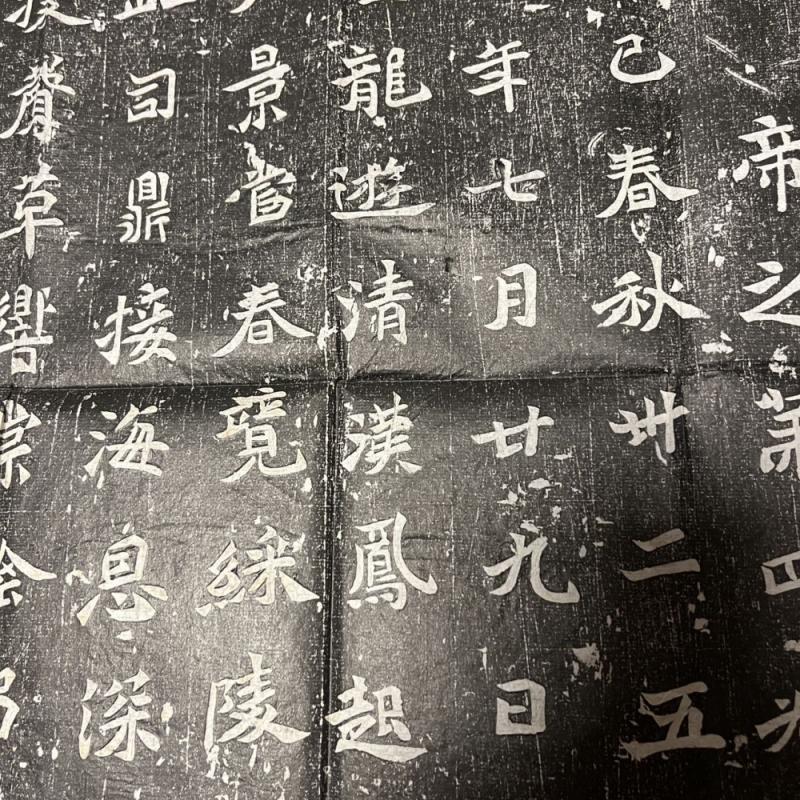 帝之苐四
已春秋卅二五
年七月廿九日
龍遊清漢鳳起
景當春竟綵陵
司鼎接海息深
草響